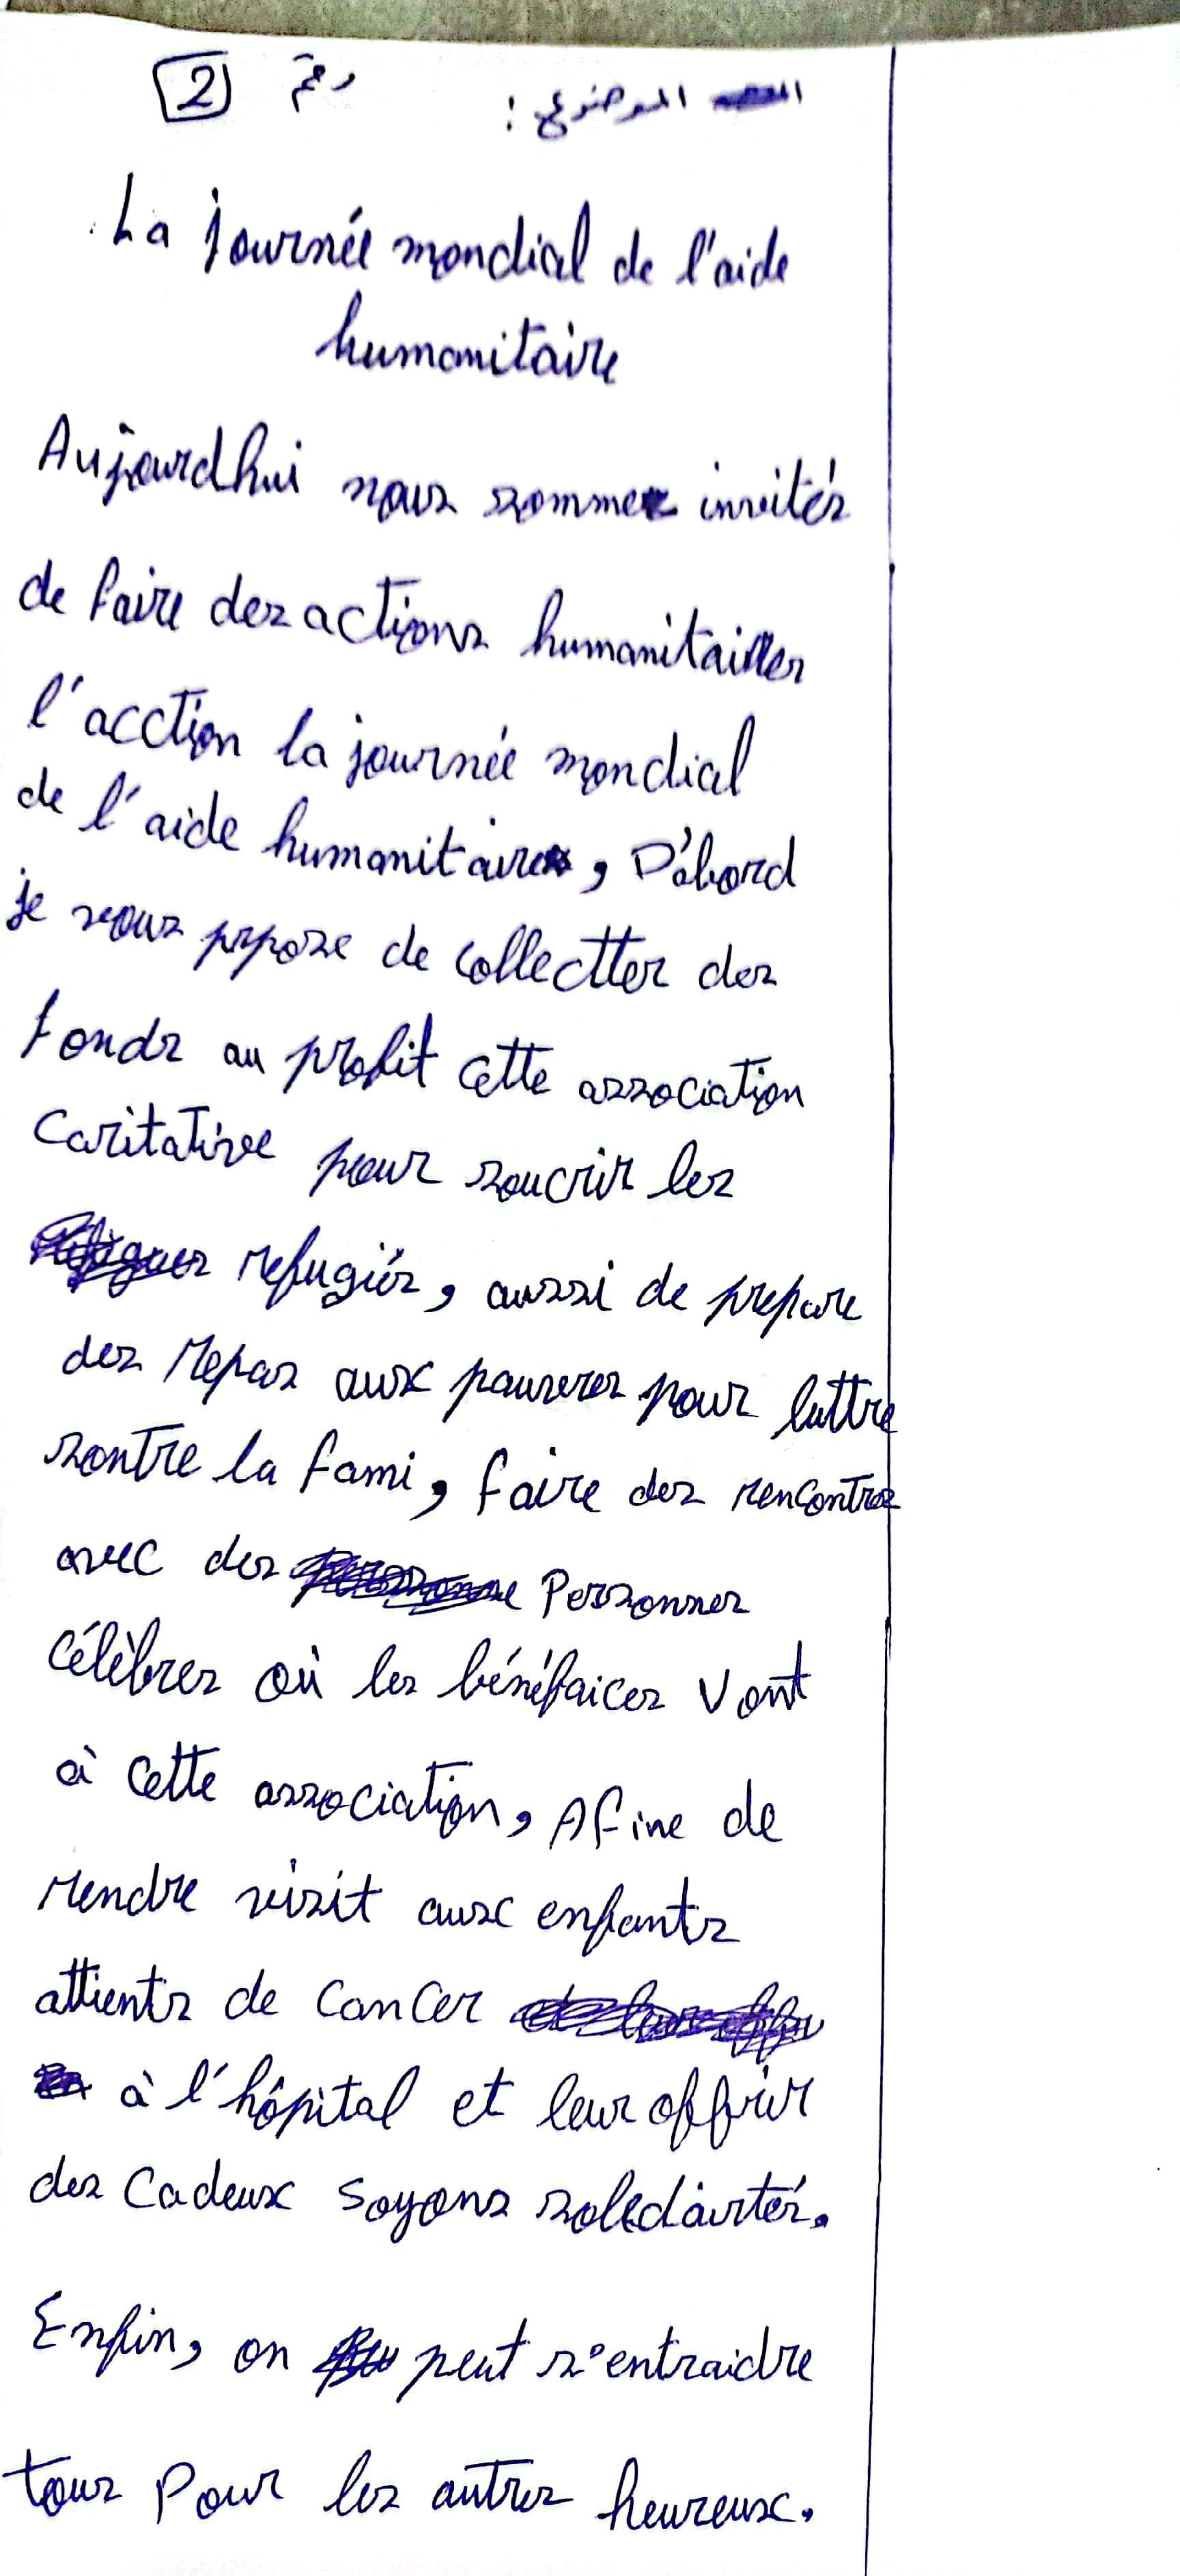 الموضوع : رقم 2
La journée mondial de l'aide
humanitaire
Aujourdhui nous sommes invités
de faire des actions humanitaires
l'acction la journée mondial
de l'aide humanitaire, D'abord
je vous prpose de collectter des
fonds au profit cette association
caritative pour soucrir les
refugiés, aussi de prepare
des repas aux pauveres pour luttre
sontre la fami, faire des rencontres
avec des Personnes
célèbres où les bénéfaices vont
à cette association, Afine de
rendre visit aux enfants
attients de cancer
à l'hôpital et leur offrir
des cadeux soyons soledairtés.
Enfin, on peut s'entraidre
tous Pour les autres heureux.